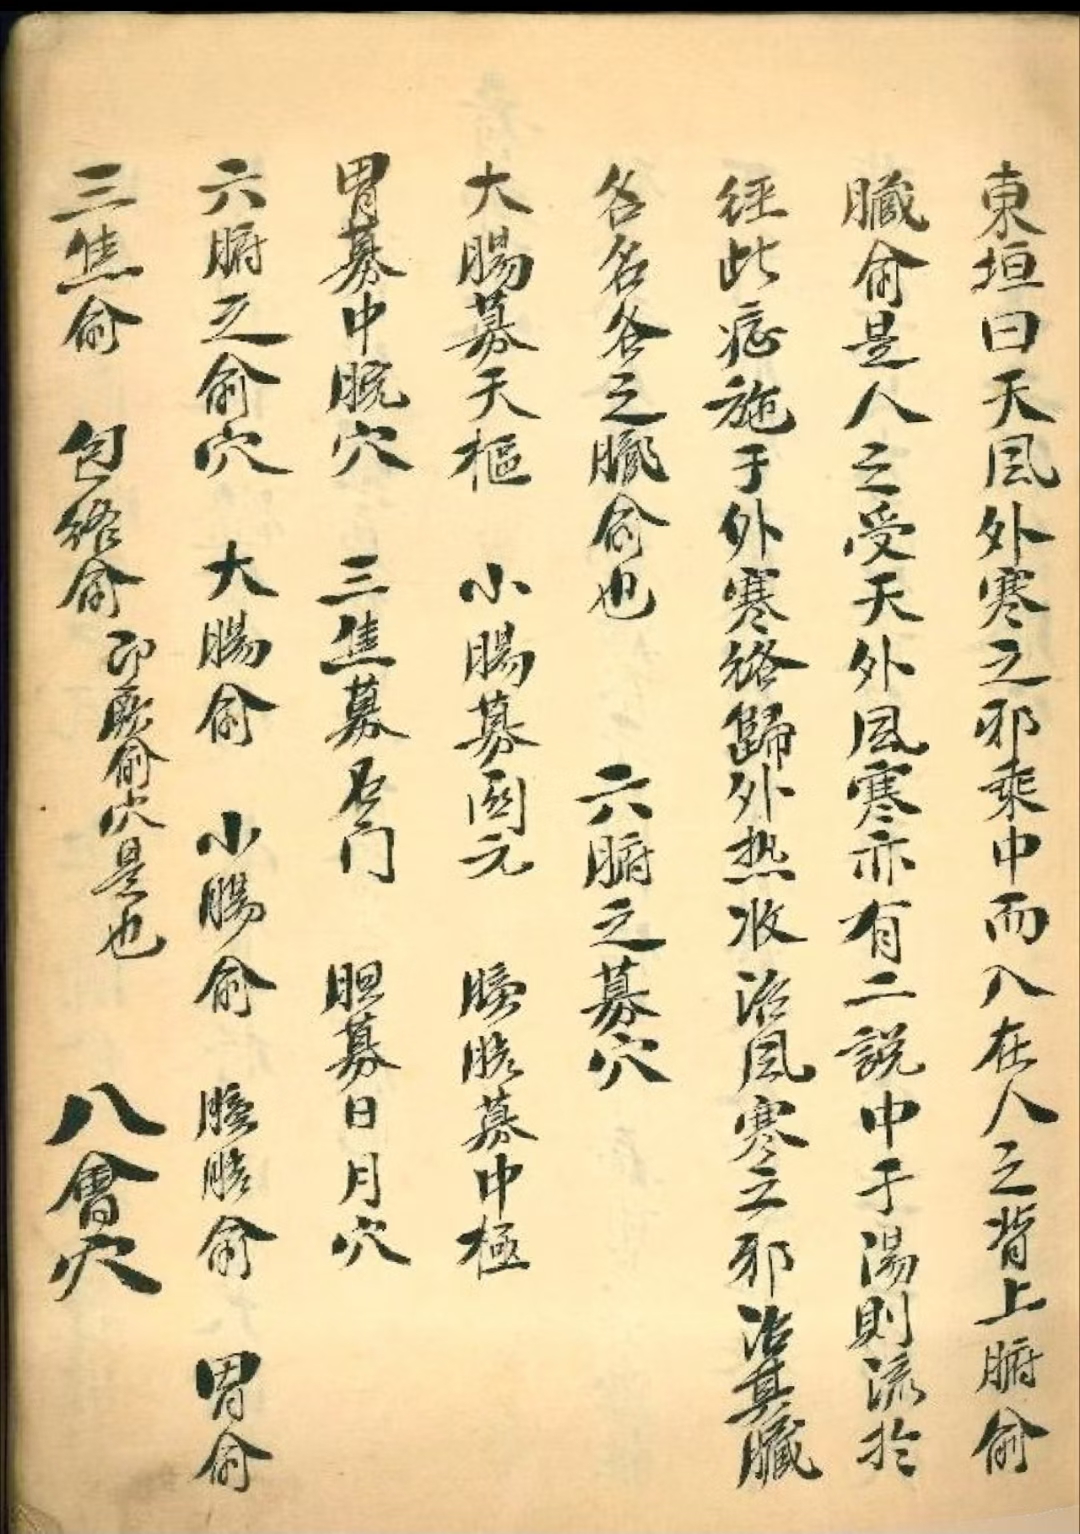 東垣曰天风外寒之邪乘中而入在人之背上腑俞
臟俞是人之受天外风寒亦有二説中于湯則流於
经此症施于外寒络歸外热收治风寒之邪治其臟
名名各之臟俞也 六腑之募穴
大腸募天樞 小腸募関元 膀胱募中極
胃募中脘穴 三焦募石门 胆募日月穴
六腑之俞穴 大腸俞 小腸俞 膀胱俞 胃俞
三焦俞 包络俞 即厥俞穴是也 八會穴